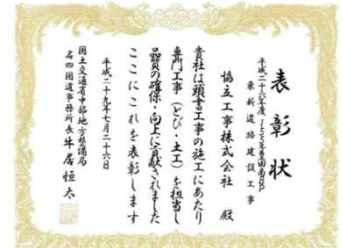 表彰状
平成二十六年度
東新道路建設工事
協立工事株式会社 殿
貴社は頭書工事の施工にあたり
専門工事(とび・土工)を担当し
品質の確保・向上に貢献されました
ここにこれを表彰します
平成二十九年七月二十六日
国土交通省中部地方整備局
名四国道事務所長 牛居恒太